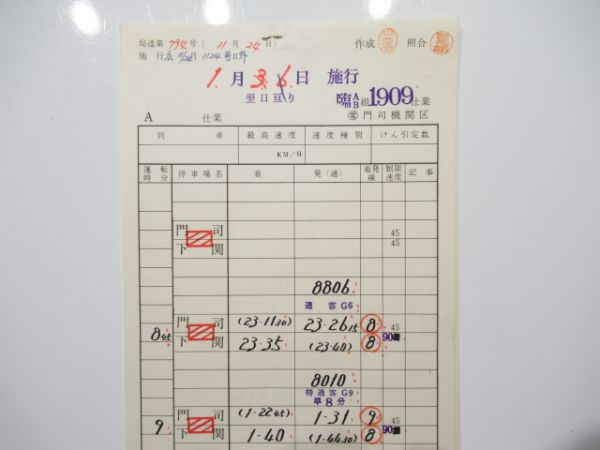 局達第 794 号 ( 11 月 24 日 )
作成 照合
施行
1 月 3.6 日 施行
翌日亘り
臨 A B 組 1909 仕業
A 仕業
門司機関区
列 車 最高速度 速度種別 けん引定数
KM/H
運転時分 停車場名 着 発(通) 着発線 制限速度 記事
門 司 45
下 関 45
8806
通 客 G6
門 司 (23-11 30) 23-26 15 8 45
8 45
下 関 23-35 (23-40) 8 90
8010
特通客 G9
早 8分
門 司 (1-22 45) 1-31 9 45
9
下 関 1-40 (1-44 30) 8 90